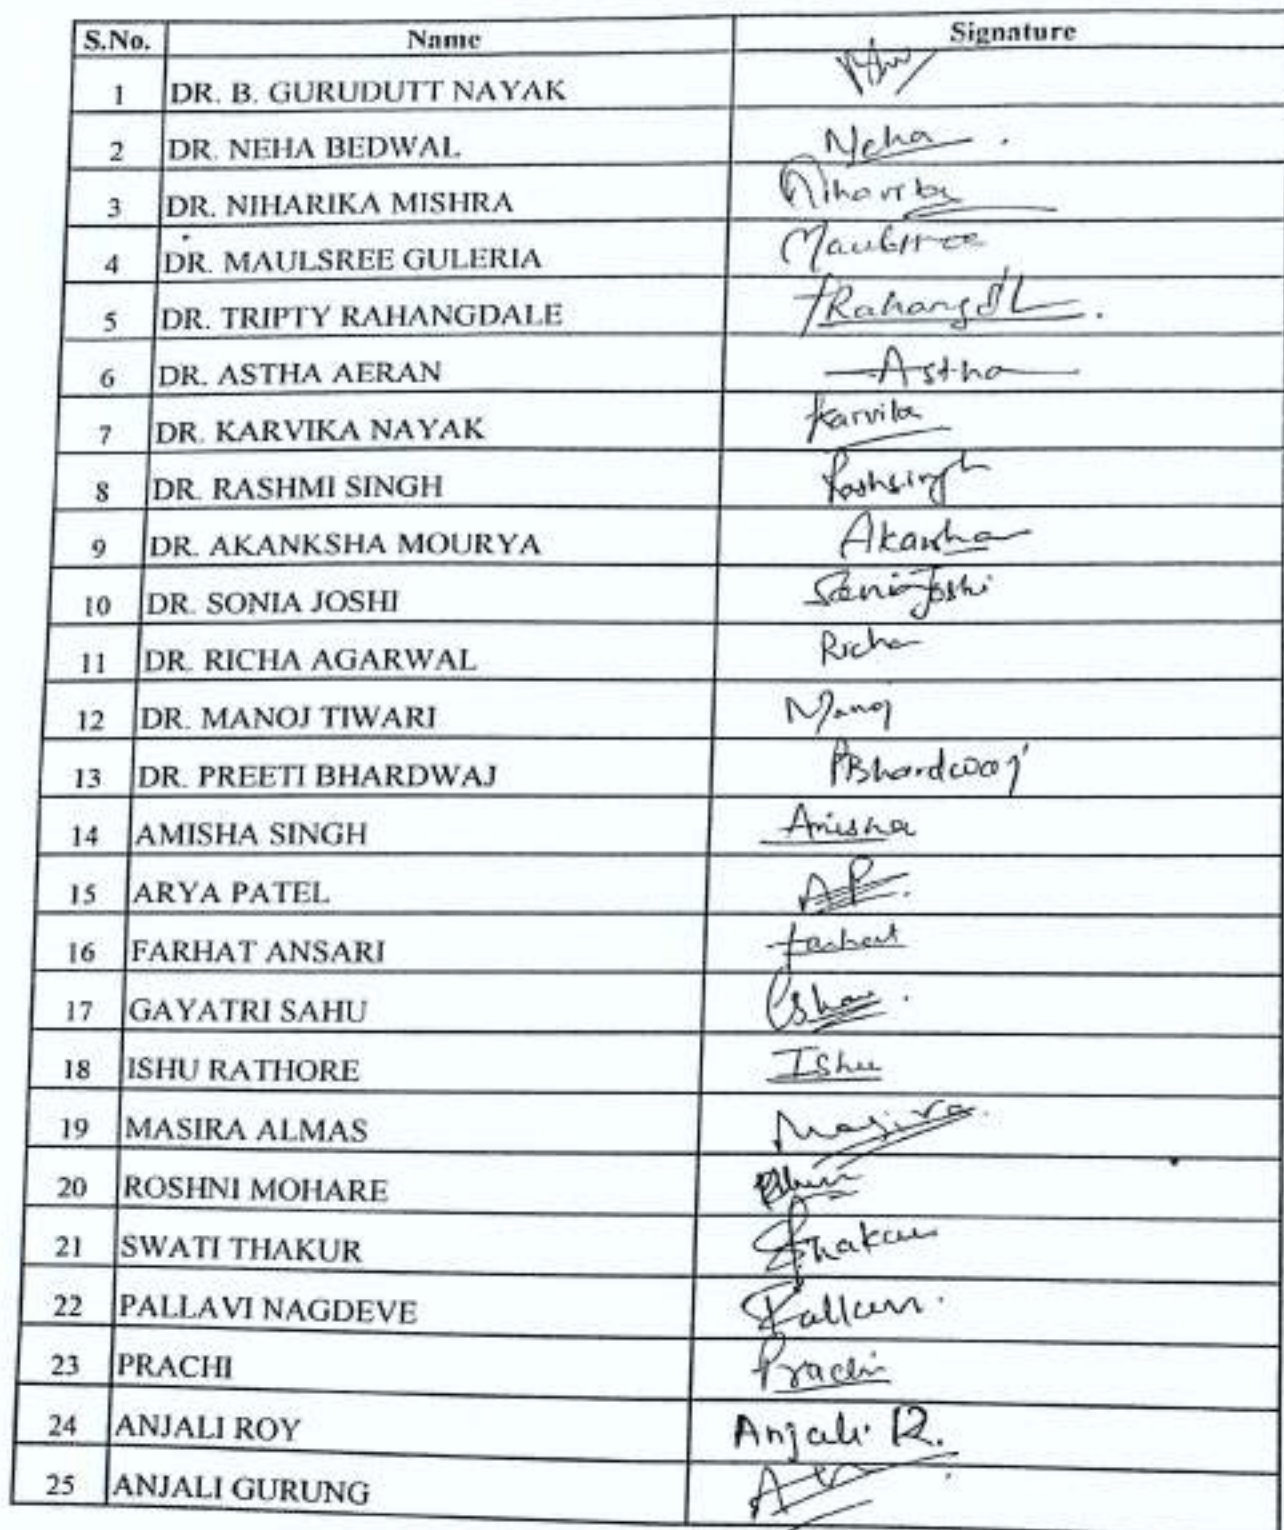 S.No. Name Signature
1 DR. B. GURUDUTT NAYAK
2 DR. NEHA BEDWAL Neha
3 DR. NIHARIKA MISHRA Niharika
4 DR. MAULSREE GULERIA Maulsree
5 DR. TRIPTY RAHANGDALE
6 DR. ASTHA AERAN Astha
7 DR. KARVIKA NAYAK Karvika
8 DR. RASHMI SINGH Rashsingh
9 DR. AKANKSHA MOURYA
10 DR. SONIA JOSHI Sonia Joshi
11 DR. RICHA AGARWAL Richa
12 DR. MANOJ TIWARI Manoj
13 DR. PREETI BHARDWAJ PBhardwaj
14 AMISHA SINGH Amisha
15 ARYA PATEL AP.
16 FARHAT ANSARI Farhat
17 GAYATRI SAHU
18 ISHU RATHORE Ishu
19 MASIRA ALMAS Masira.
20 ROSHNI MOHARE
21 SWATI THAKUR
22 PALLAVI NAGDEVE Pallavi.
23 PRACHI Prachi
24 ANJALI ROY Anjali R.
25 ANJALI GURUNG